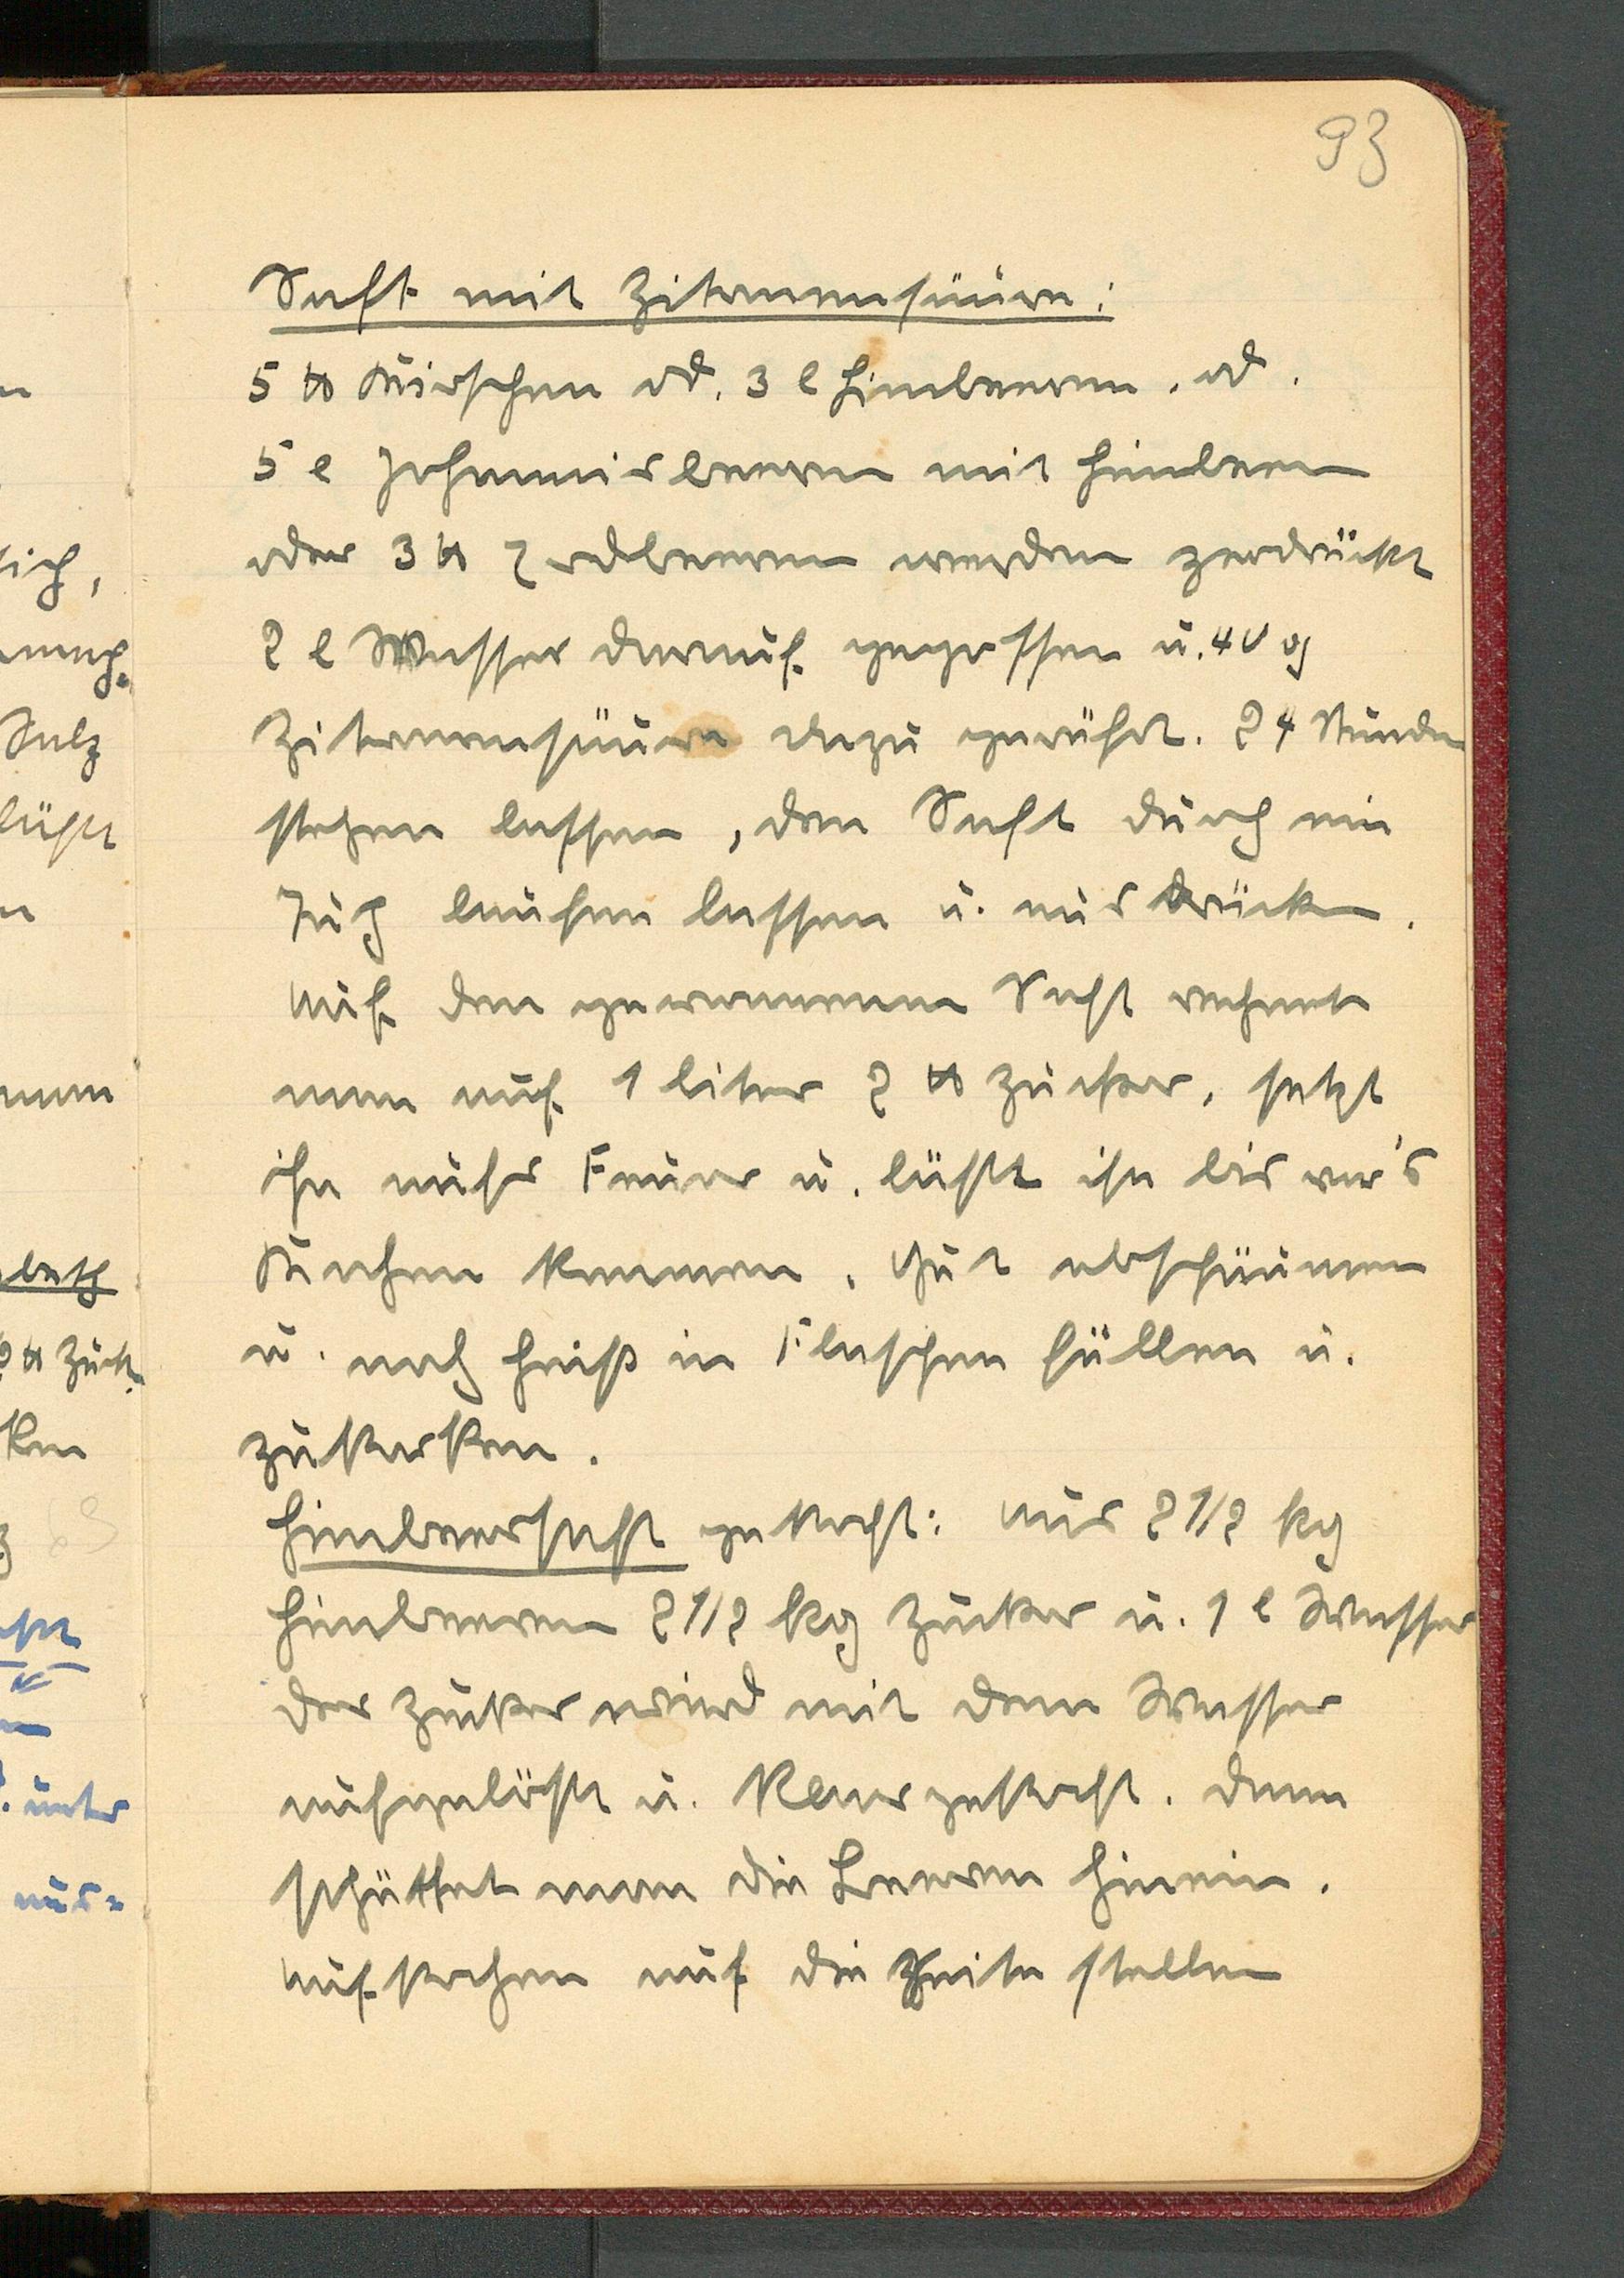 93
Saft mit Zitronensäure:
5 ℔ Kirschen od. 3 l Himbeeren. od.
5 l Johannisbeeren mit Himbeen
oder 3 ℔ Erdbeeren werden zerdrückt
2 l Wasser darauf gegossen u. 40 g
Zitronensäure dazu gerührt. 24 Stunden
stehen lassen, den Saft durch ein
Tuch laufen lassen u. ausdrücken.
Auf den gewonnenen Saft rechnet
man auf 1 liter 2 ℔ Zucker, setzt
ihn aufs Feuer u. läßt ihn bis vor's
Kochen kommen. Gut abschäumen
u. noch heiß in Flaschen füllen u.
zukorken.
Himbeersaft gekocht: Aus 2 1/2 kg
Himbeeren 2 1/2 kg Zucker u. 1 l Wasser
der Zucker wird mit dem Wasser
aufgelöst u. klar gekocht. dann
schüttet man die Beeren hinein.
Aufkochen auf die Seite stellen
sich,
Salz
läßt
2 ℔ Zuck.
unter
aus=